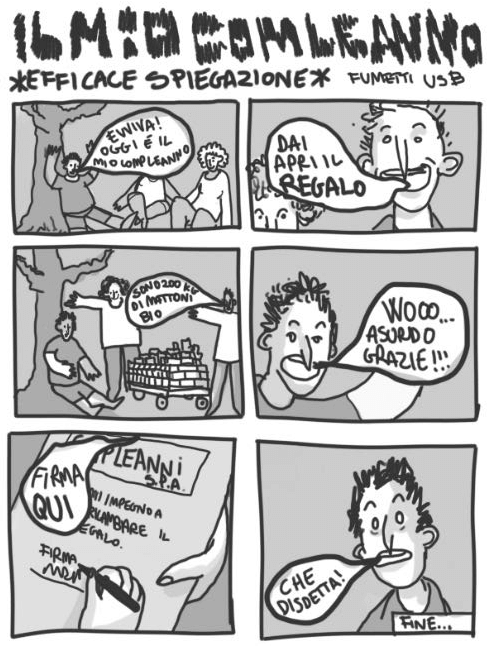 IL MIO COMLEANNO
*EFFICACE SPIEGAZIONE*
FUMETTI USB
EVVIVA!
OGGI É IL
MIO COMPLEANNO
DAI
APRI IL
REGALO
SONO 200 KG
DI MATTONI
BIO
WOOO...
ASURDO
GRAZIE!!!
FIRMA
QUI
PLEANNI
S.P.A.
MI IMPEGNO A
RICAMBIARE IL
REGALO.
FIRMA
CHE
DISDETTA!
FINE...